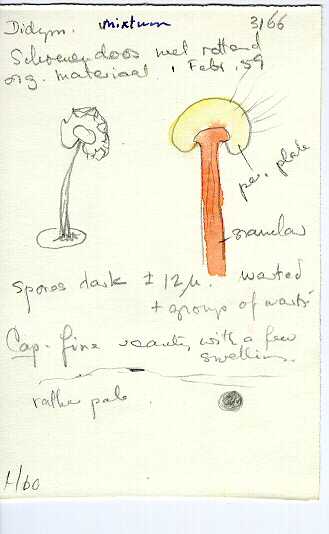 Didym. mixtum 3/66
Schoenendoos met rottend
org. materiaal. , Febr. 59
per. plate
granular
Spores dark ± 12 µ. warted
+ groups of warts
Cap. fine scanty, with a few
swellings.
rather pale.
1/60